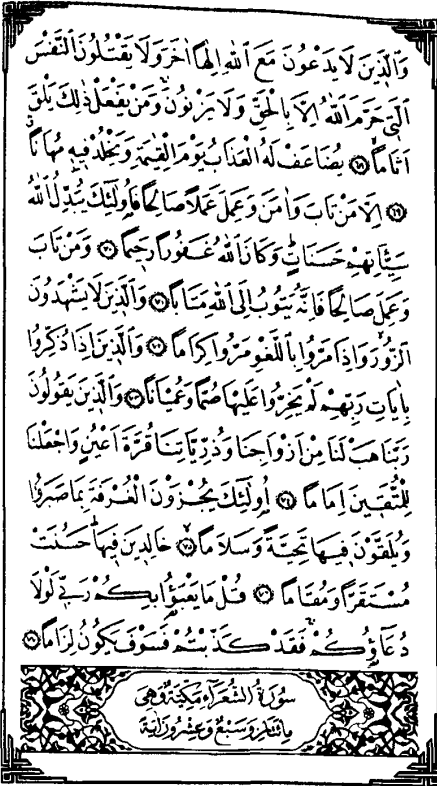 وَالَّذِينَ لَا يَدْعُونَ مَعَ اللّٰهِ اِلٰهًا اٰخَرَ وَلَا يَقْتُلُونَ النَّفْسَ
الَّتِي حَرَّمَ اللّٰهُ اِلَّا بِالْحَقِّ وَلَا يَزْنُونَ وَمَنْ يَفْعَلْ ذٰلِكَ يَلْقَ
اَثَامًا ۝٦٨ يُضَاعَفْ لَهُ الْعَذَابُ يَوْمَ الْقِيٰمَةِ وَيَخْلُدْ فِيهِ مُهَانًا
۝٦٩ اِلَّا مَنْ تَابَ وَاٰمَنَ وَعَمِلَ عَمَلًا صَالِحًا فَاُولٰئِكَ يُبَدِّلُ اللّٰهُ
سَيِّاٰتِهِمْ حَسَنَاتٍ وَكَانَ اللّٰهُ غَفُورًا رَحِيمًا ۝٧٠ وَمَنْ تَابَ
وَعَمِلَ صَالِحًا فَاِنَّهُ يَتُوبُ اِلَى اللّٰهِ مَتَابًا ۝٧١ وَالَّذِينَ لَا يَشْهَدُونَ
الزُّورَ وَاِذَا مَرُّوا بِاللَّغْوِ مَرُّوا كِرَامًا ۝٧٢ وَالَّذِينَ اِذَا ذُكِّرُوا
بِاٰيَاتِ رَبِّهِمْ لَمْ يَخِرُّوا عَلَيْهَا صُمًّا وَعُمْيَانًا ۝٧٣ وَالَّذِينَ يَقُولُونَ
رَبَّنَا هَبْ لَنَا مِنْ اَزْوَاجِنَا وَذُرِّيَّاتِنَا قُرَّةَ اَعْيُنٍ وَاجْعَلْنَا
لِلْمُتَّقِينَ اِمَامًا ۝٧٤ اُولٰئِكَ يُجْزَوْنَ الْغُرْفَةَ بِمَا صَبَرُوا
وَيُلَقَّوْنَ فِيهَا تَحِيَّةً وَسَلَامًا ۝٧٥ خَالِدِينَ فِيهَا حَسُنَتْ
مُسْتَقَرًّا وَمُقَامًا ۝٧٦ قُلْ مَا يَعْبَؤُا بِكُمْ رَبِّي لَوْلَا
دُعَاؤُكُمْ فَقَدْ كَذَّبْتُمْ فَسَوْفَ يَكُونُ لِزَامًا ۝٧٧
سُورَةُ الشُّعَرَاءِ مَكِّيَّةٌ وَهِيَ
مِائَتَانِ وَسَبْعٌ وَعِشْرُونَ اٰيَةً